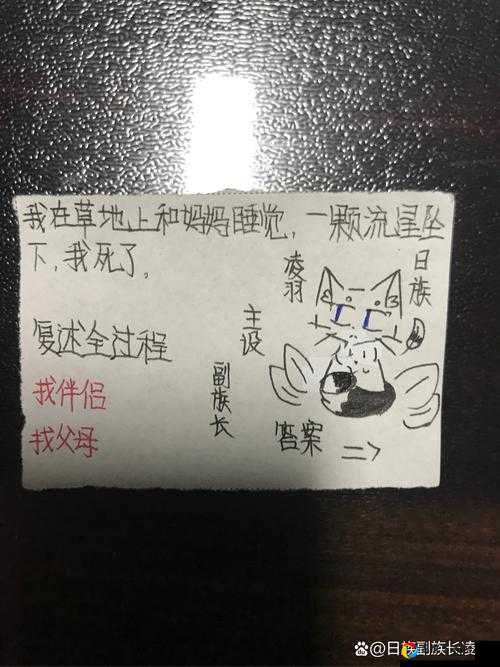 我在草地上和妈妈睡觉，一颗流星坠
下，我死了。
复述全过程
找伴侣
找父母
主设
副族长
凌羽
日族
答案 =>
日族副族长凌